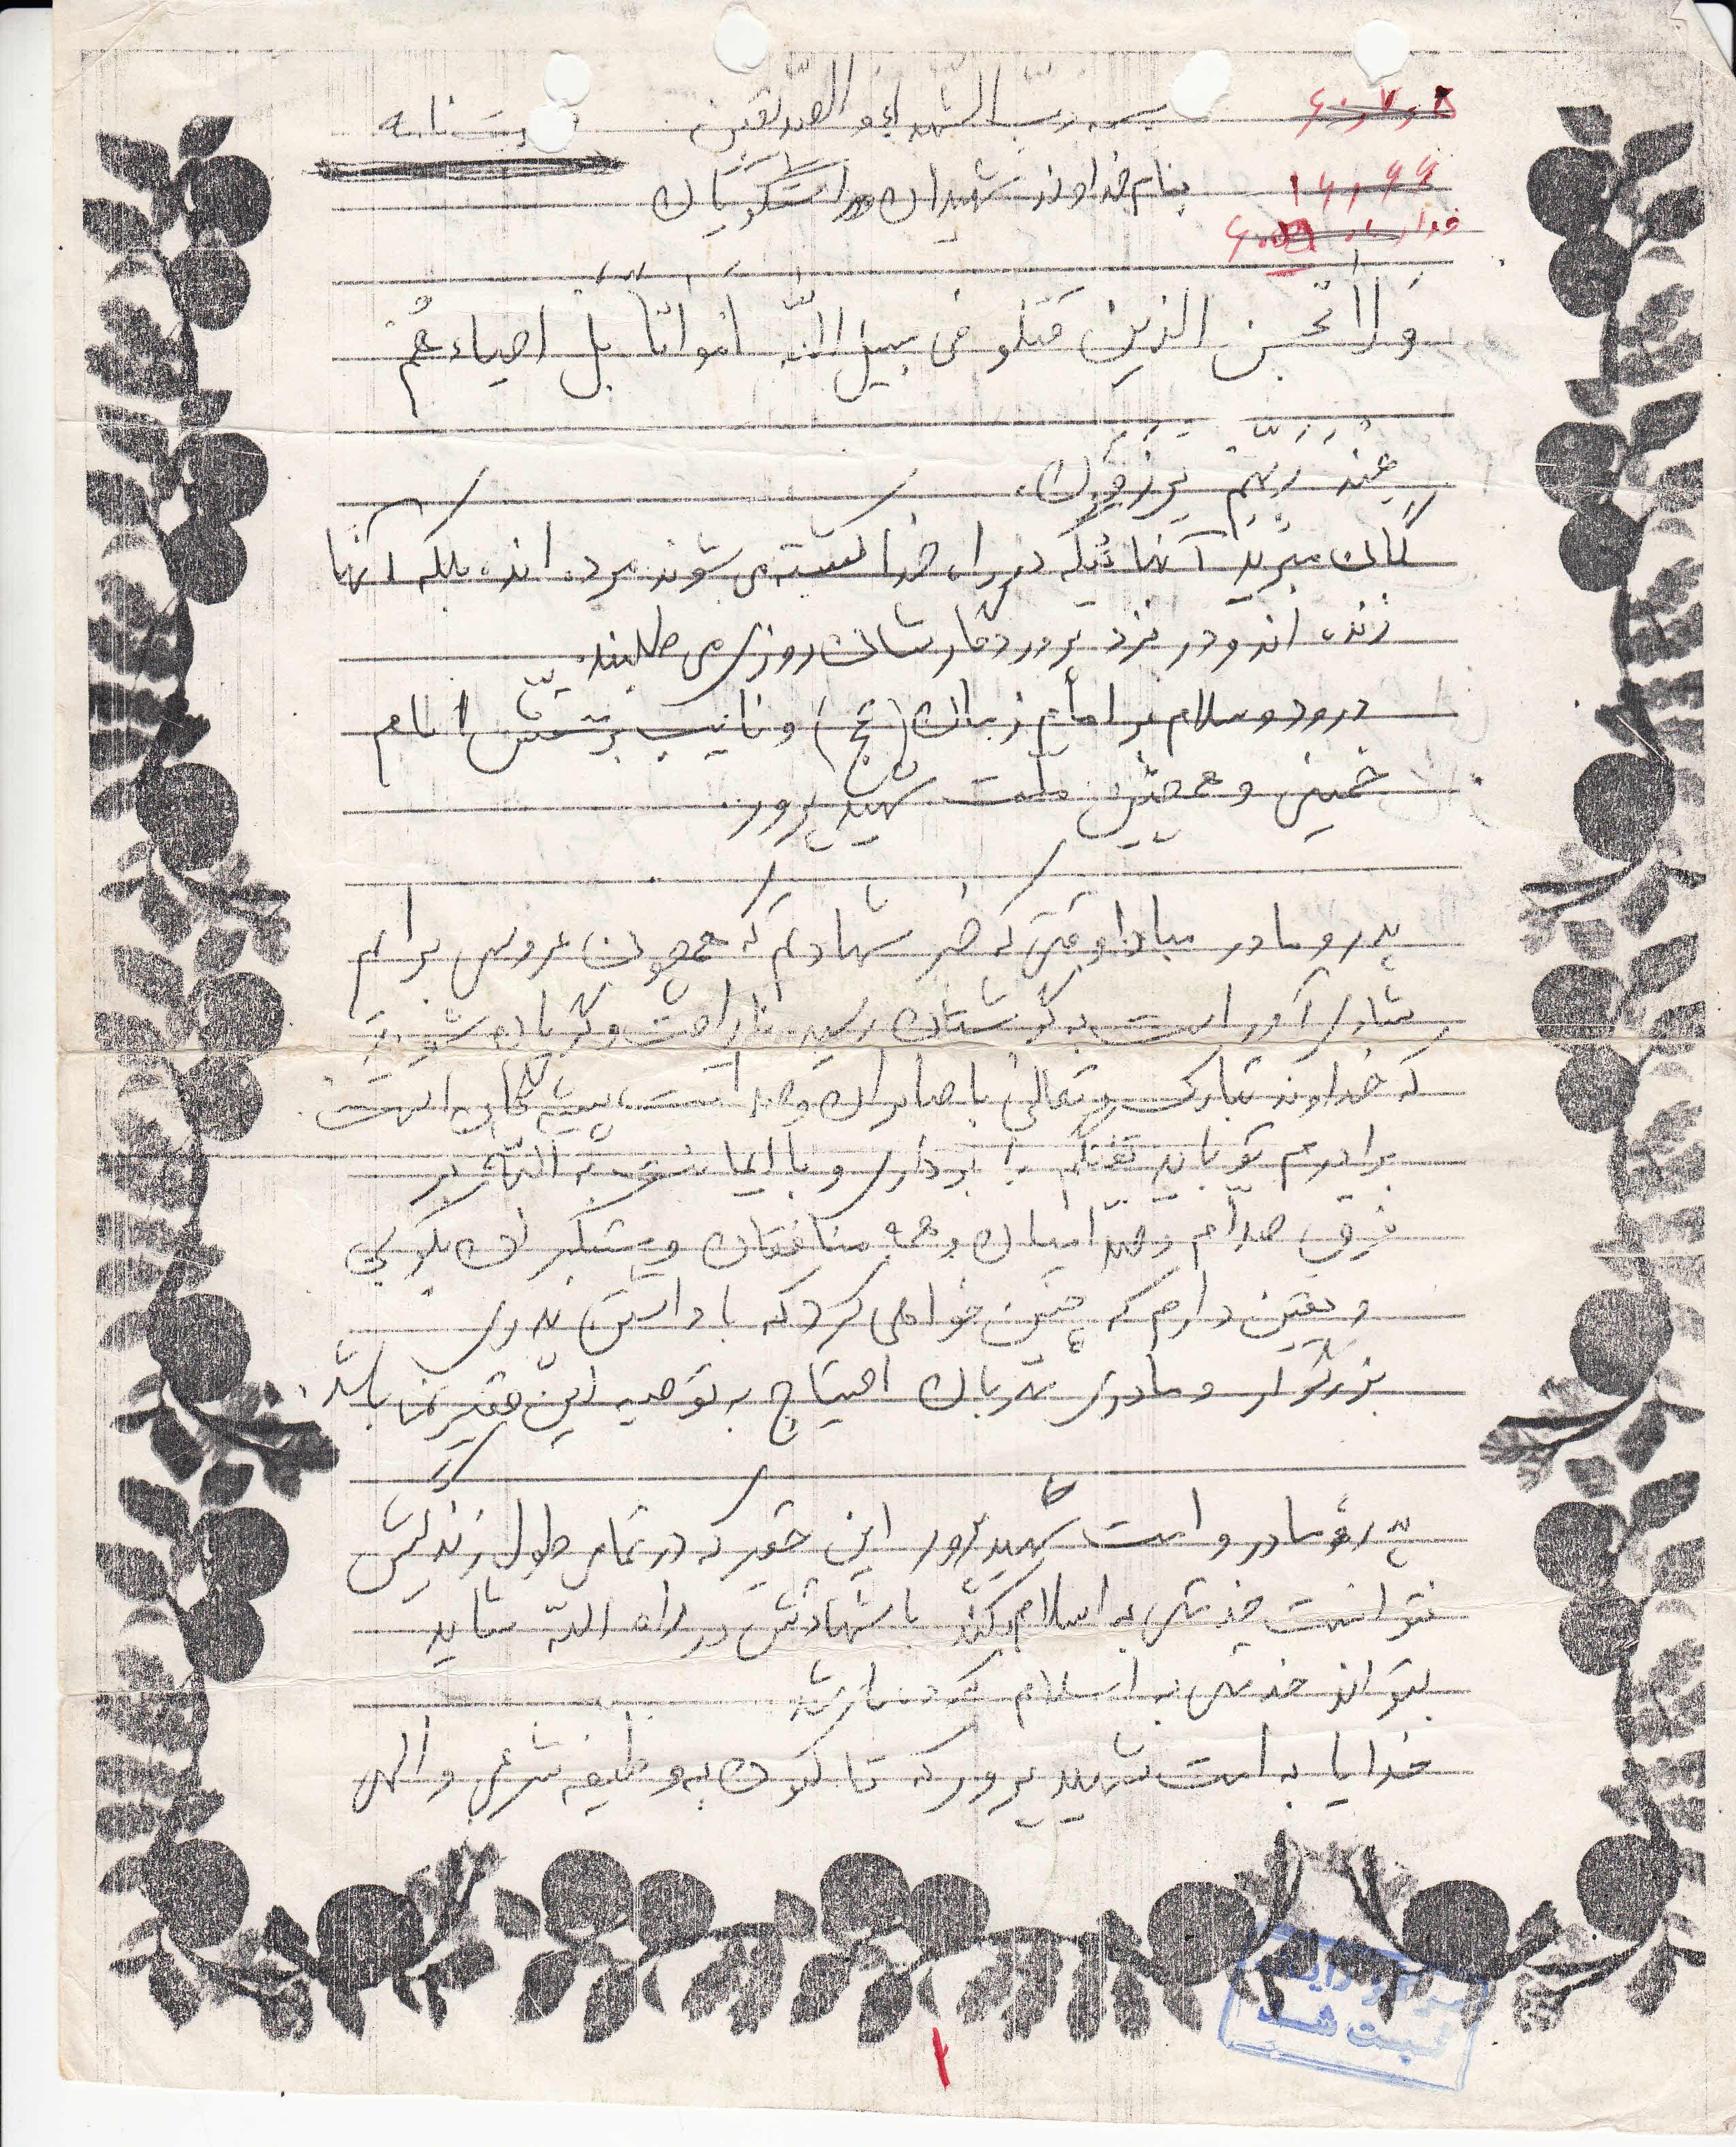 بسمه رب الشهداء و الصدیقین
نامه
بنام خداوند شهیدان و راستگویان
۶۰٫۷٫۸
وَلا تحسبن الذین قتلو فی سبیل اللّه اَمواتاً بَل احیاء هُم
عِندَ رَبِّهِم یُرزَقُون.
گمان مبرید آنهائیکه در راه خدا کشته می شوند مرده اند، بلکه آنها
زنده اند و در نزد پروردگارشان روزی می طلبند.
درود و سلام بر امام زمان (عج) و نایب برحقش امام
خمینی و همچنین ملت شهیدپرور.
پدر و مادر مبادا وقتی که خبر شهادتم که همچون عروسی برایم
شادی آور است به گوشتان رسید ناراحت و گریان شوید
که خداوند تبارک و تعالی با صابران
برادرم تو باید تفنگم را برداری و با ایمانت به اللّه بر
فرق صدّام و صدّامیان و همه منافقان و مستکبران بکوبی
و یقین دارم که چنین خواهی کرد که با داشتن پدری
بزرگوار و مادری مهربان احتیاج به توصیه این حقیر نمی باشد.
پدر و مادر و امت شهیدپرور این حقیر که در تمام طول زندگیش
نتوانست خدمتی به اسلام بکند با شهادتش در راه اللّه شاید
بتواند خدمتی به اسلام کرده باشد
خدایا به امت شهیدپرور که تا کنون به وظیفه شرعی و الهی
ثبت شد
۱